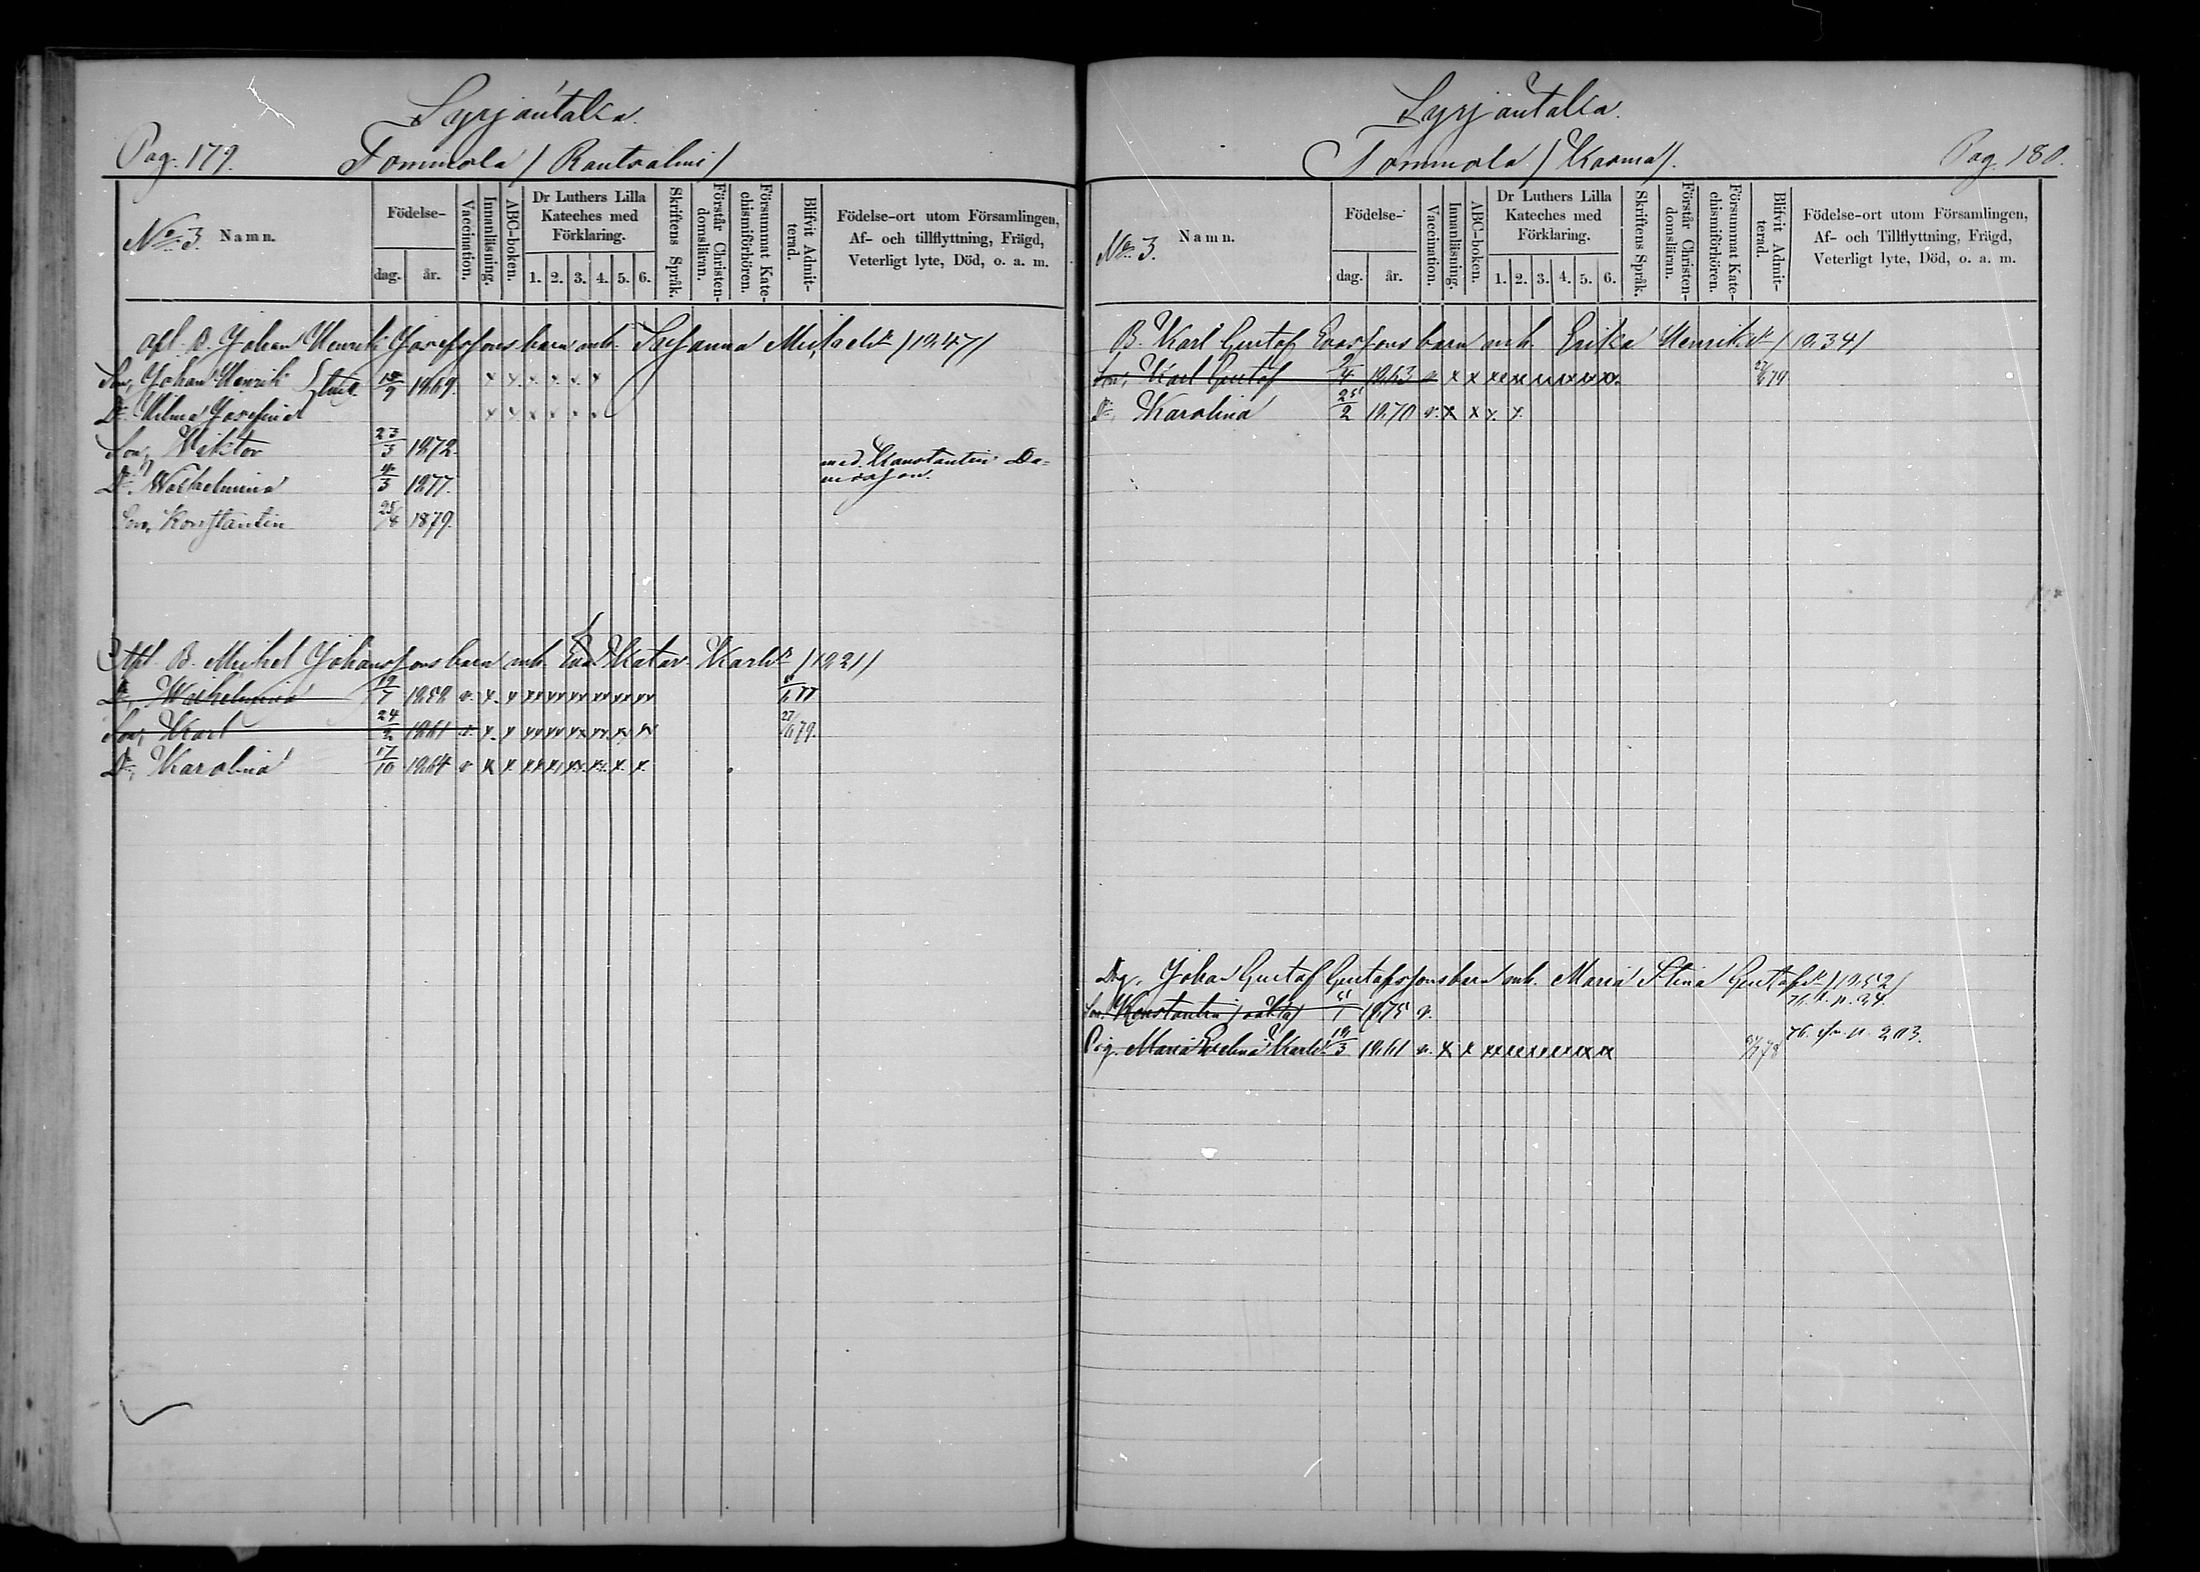 Syrjäntaka.
Pag. 179.
Tommola / Rantsalmi /
No 3. Namn.
Födelse-
dag. år.
Vaccination.
Innanläsning.
ABC-boken.
Dr Luthers Lilla Kateches med Förklaring.
1. 2. 3. 4. 5. 6.
Skriftens Språk.
Förstår Christendomsläran.
Försummat Katechismiförhören.
Blifvit Admitterad.
Födelse-ort utom Församlingen,
Af- och tillflyttning, Frägd,
Veterligt lyte, Död, o. a. m.
afl. B. Johan Henrik Josefssons barn mh. Susanna Michelsdr / 1847 /
Son, Johan Henrik 18/9 1869. x x x x x x
Dr. Hilma Josefina x x x x x x
Son, Viktor 23/3 1872.
Dr. Wilhelmina 4/3 1877.
med. Konstantin
Son, Konstantin 25/8 1879.
Afl. B. Michel Johanssons barn mh. Eva Katar. Karlsdr / 1821 /
Dr, Wilhelmina 19/7 1858 v. x. x xx xx xx xx xx xx 77
Son, Karl 24/2 1861 v. x. x xx xx xx xx. xx xx 27/6 79.
Dr, Karolina 17/10 1864 v x x xx x xx. xx. x x.
Syrjäntaka.
Tommola / Kosma /.
Pag. 180.
No 3. Namn.
Födelse-
dag. år.
Vaccination.
Innanläsning.
ABC-boken.
Dr Luthers Lilla Kateches med Förklaring.
1. 2. 3. 4. 5. 6.
Skriftens Språk.
Förstår Christendomsläran.
Försummat Katechismiförhören.
Blifvit Admitterad.
Födelse-ort utom Församlingen,
Af- och Tillflyttning, Frägd,
Veterligt lyte, Död, o. a. m.
B. Karl Gustaf Eerssons barn mh. Erika Henriksdr / 1834 /
Son, Karl Gustaf 9/4 1863 v x x xx xx xx xx xx xx. 27/6 79
Dr, Karolina 25/2 1870 v. x x x. x.
Drg. Johan Gustaf Gustafssons barn mh. Maria Stina Gustafsdr / 1852 /
Son. Konstantin / oäkta / 1875 v.
Pig. Maria Evelina Karlsdr 18/3 1861 v. x x xx xx xx xx xx xx 78 76. p. 203.